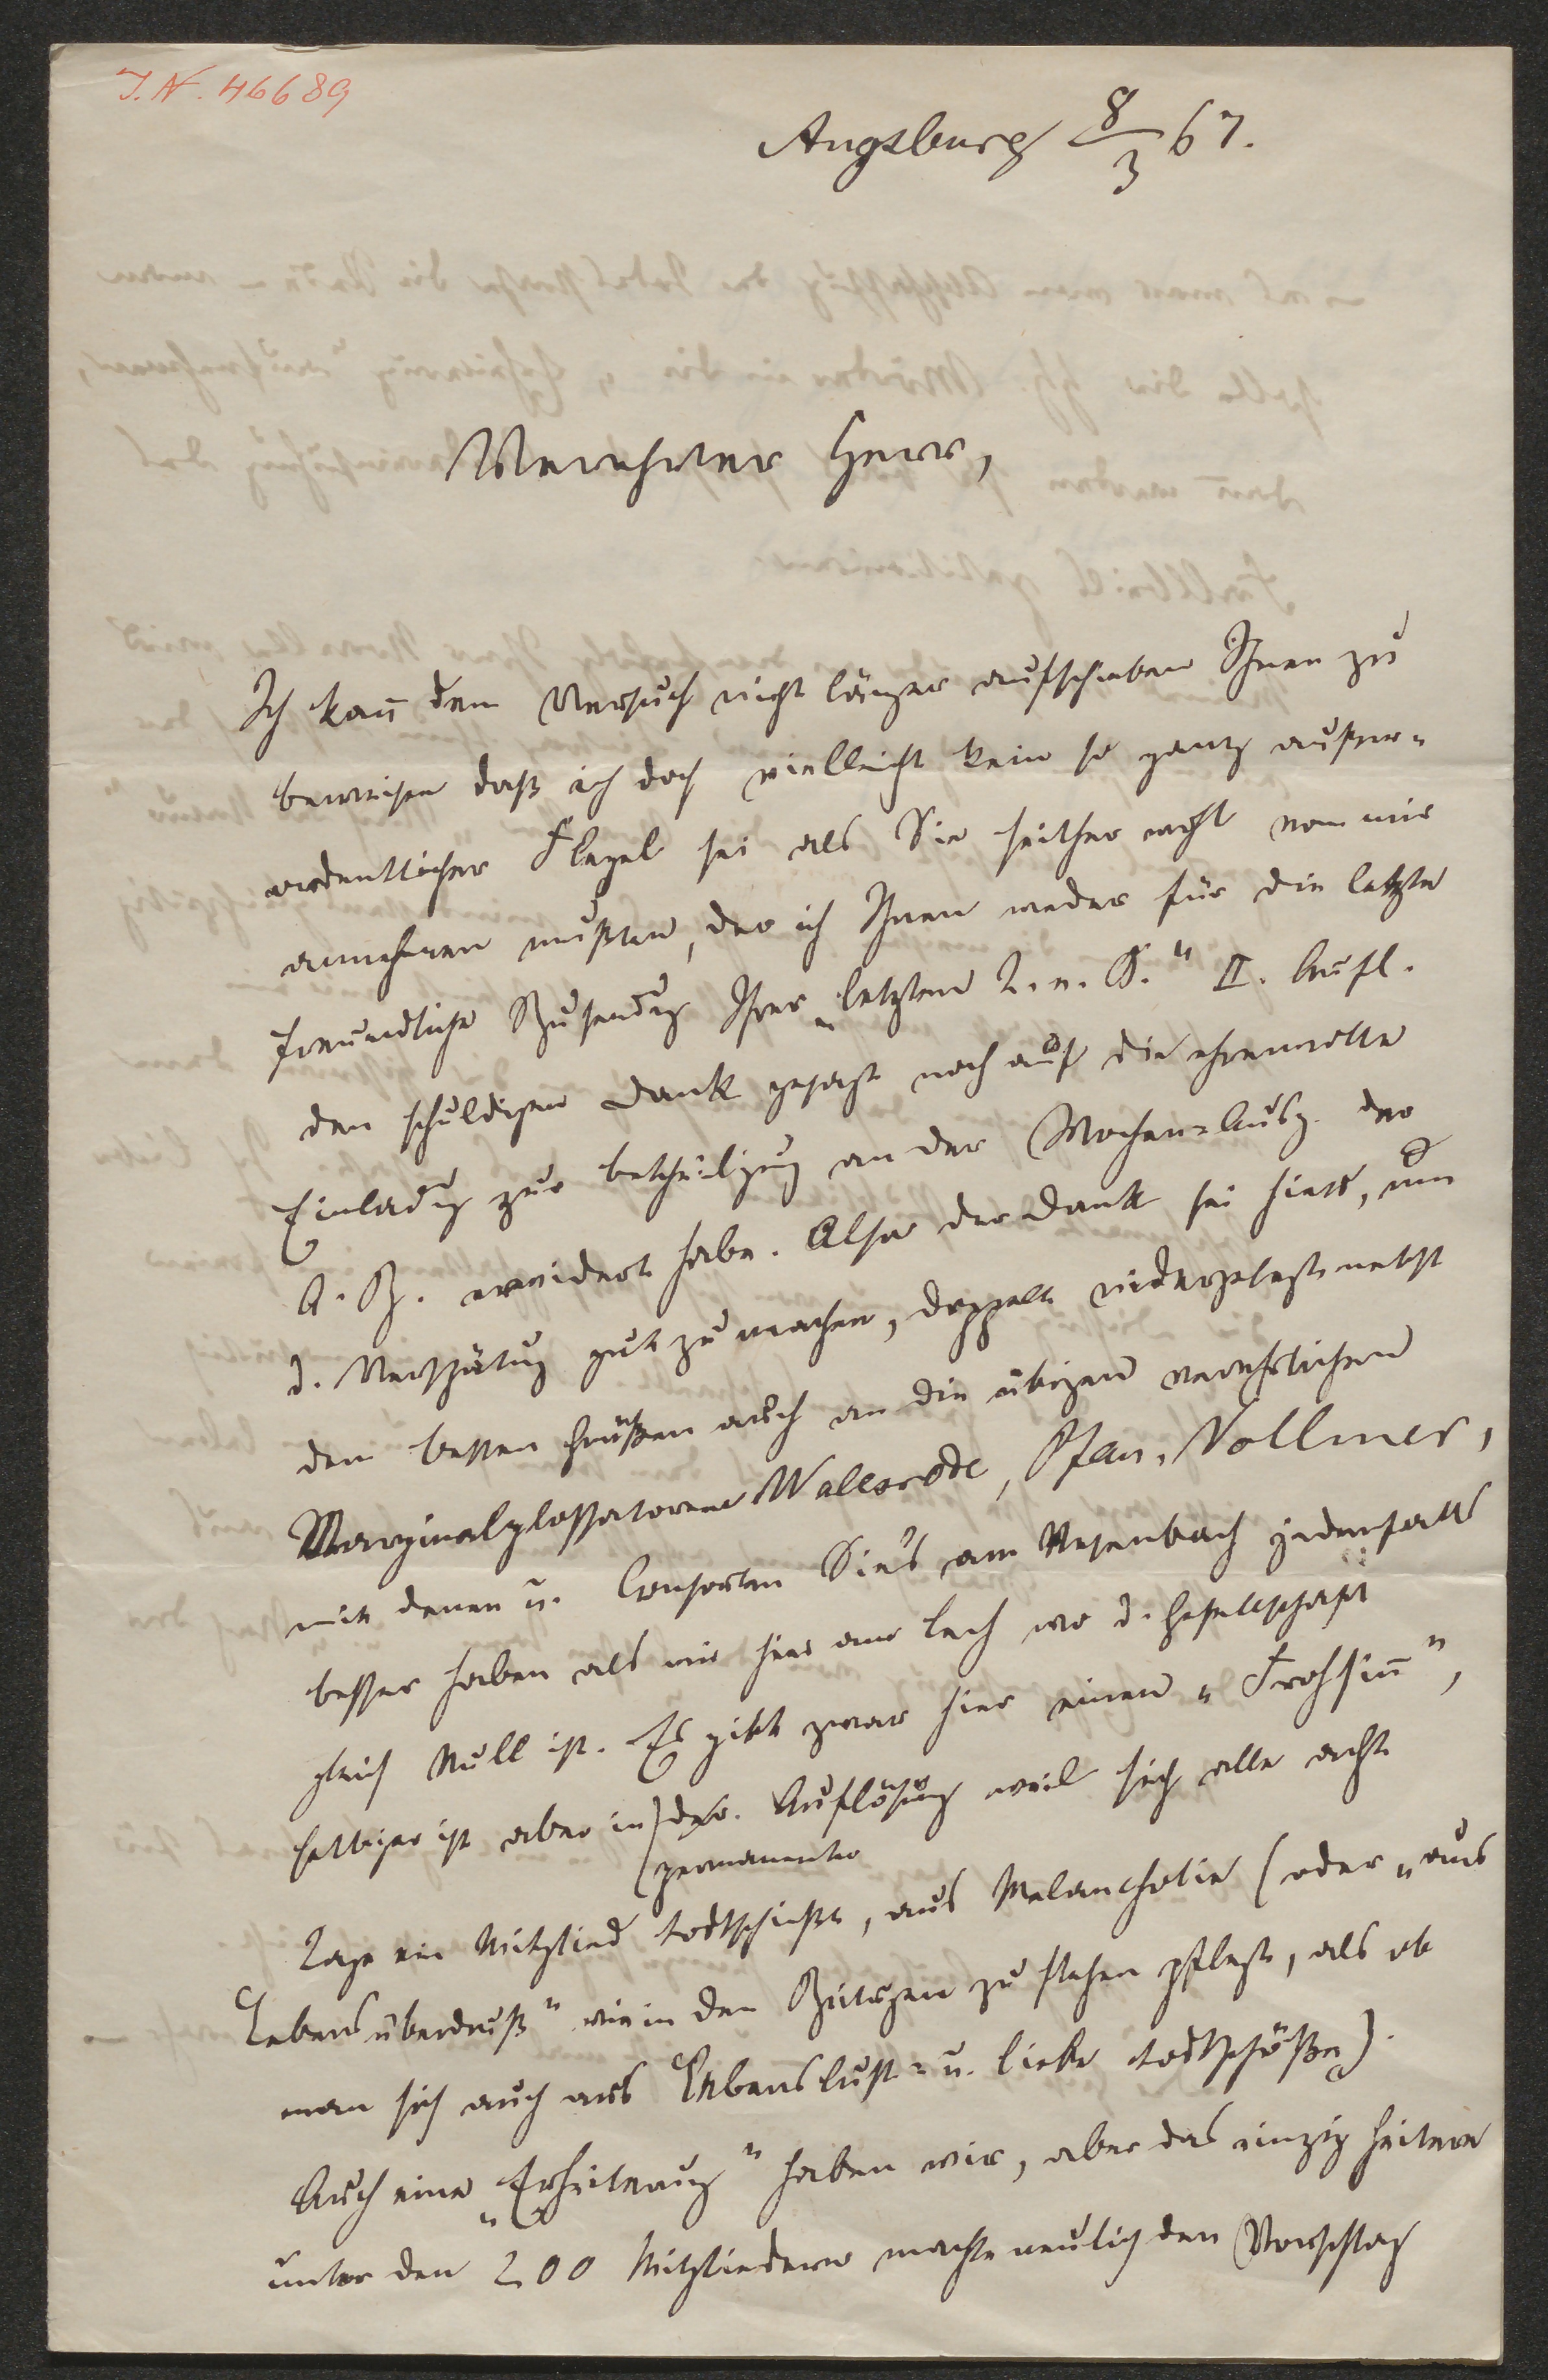 J.N. 46689
Augsburg 8/3 67.
Verehrter Herr,
Ich kan̄ den Versuch nicht länger aufschieben Ihnen zu
beweisen daß ich doch vielleicht kein so ganz außer=
ordentlicher Flegel sei als Sie seither wohl von mir
annehmen mußten, der ich Ihnen weder für die letzte
freundliche Zusendg Ihrer „letzten T. e. K." II. Aufl.
den schuldigen Dank gesagt noch auf die ehrenvolle
Einladg zur betheiligung an der Wochen=Ausg. der
A. Z. erwidert habe. Also der Dank sei hier, um
d. Verspätung gut zu machen, doppelt niedergelegt nebst
den besten Grüßen auch an die übigen verehrlichen
Marginalglossatoren Walesrode, Pfau, Vollmer,
mit denen u. Consorten Sie's am Nesenbach jedenfalls
besser haben als wir hier am Lech wo d. Gesellschaft
gleich Null ist. Es gibt zwar hier einen „Frohsin̄",
selbiger ist aber in Auflösung weil sich alle acht
permanenter
Tage ein Mitglied todtschießt, aus Melancholie (oder „aus
Lebensüberdruß" wie in den Zeitugen zu stehen pflegt, als ob
man sich auch aus Lebenslust= u. liebe todtschöße).
Auch eine „Erheiterung" haben wir, aber das einzig heitere
unter den 200 Mitgliedern machte neulich den Vorschlag